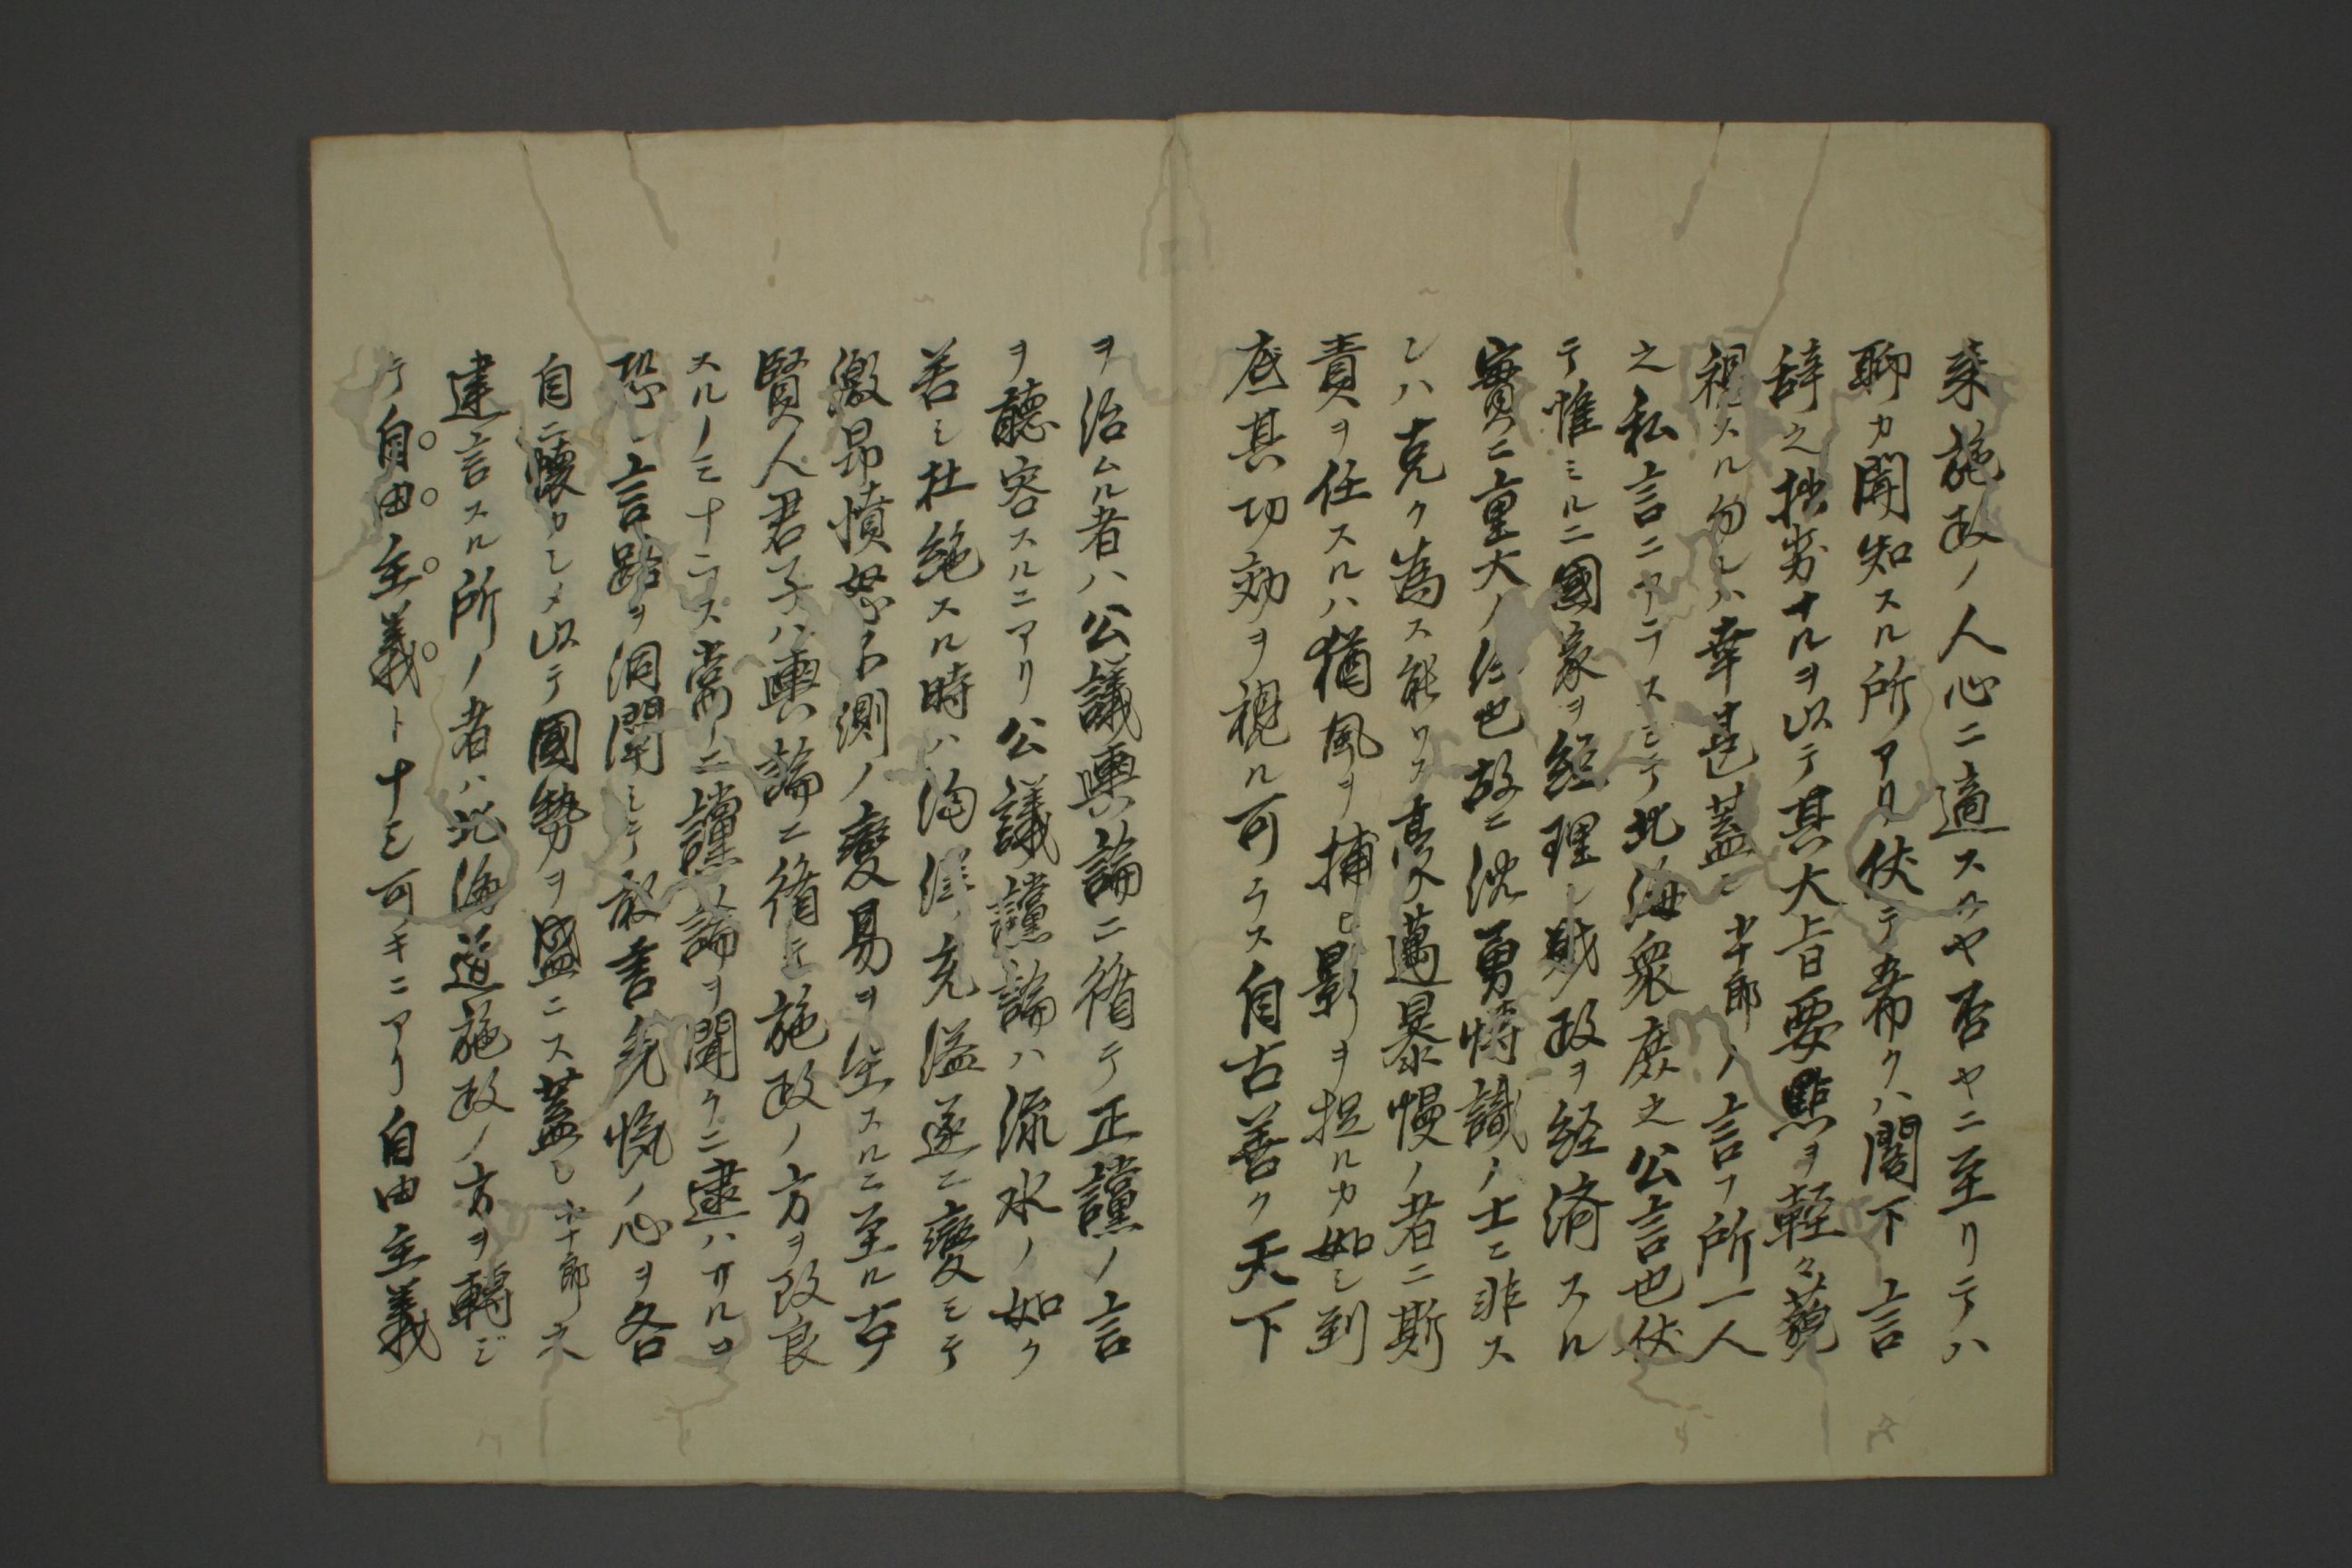 来施政ノ人心ニ適スルヤ否ヤニ至リテハ
聊カ聞知スル所アリ伏テ希クハ閣下言
辞之拙劣ナルヲ以テ其大旨要點ヲ輕々藐
視スル勿レハ幸甚蓋シ半十郎ノ言フ所一人
之私言ニアラスシテ北海衆庶之公言也伏
テ惟ミルニ國家ヲ經理シ財政ヲ経済スル
實ニ重大ノ任也故ニ沈勇博識ノ士ニ非ス
ンハ克ク為ス能ワス豪邁暴慢ノ者ニ斯
責ヲ任スルハ猶風ヲ捕ヒ影ヲ捉ルカ如シ到
底其功効ヲ視ル可ラス自古善ク天下
ヲ治ムル者ハ公議輿論ニ循テ正讜ノ言
ヲ聴容スルニアリ公議讜論ハ流水ノ如ク
若シ杜絶スル時ハ洶洋充溢遂ニ變シテ
激昂憤怒不測ノ變易ヲ生スルニ至ル古
賢人君子ハ輿論ニ循ヒ施政ノ方ヲ改良
スルノミナラス常ニ讜論ヲ聞クニ逮ハサルヿヲ
恐レ言路ヲ洞開シテ敢言ノ心ヲ各
自ニ懐カシメ以テ國勢ヲ盛ニス蓋シ半十郎ノ
建言スル所ノ者ハ北海道施政ノ方ヲ轉ジ
テ自由主義トナシ可キニアリ自由主義